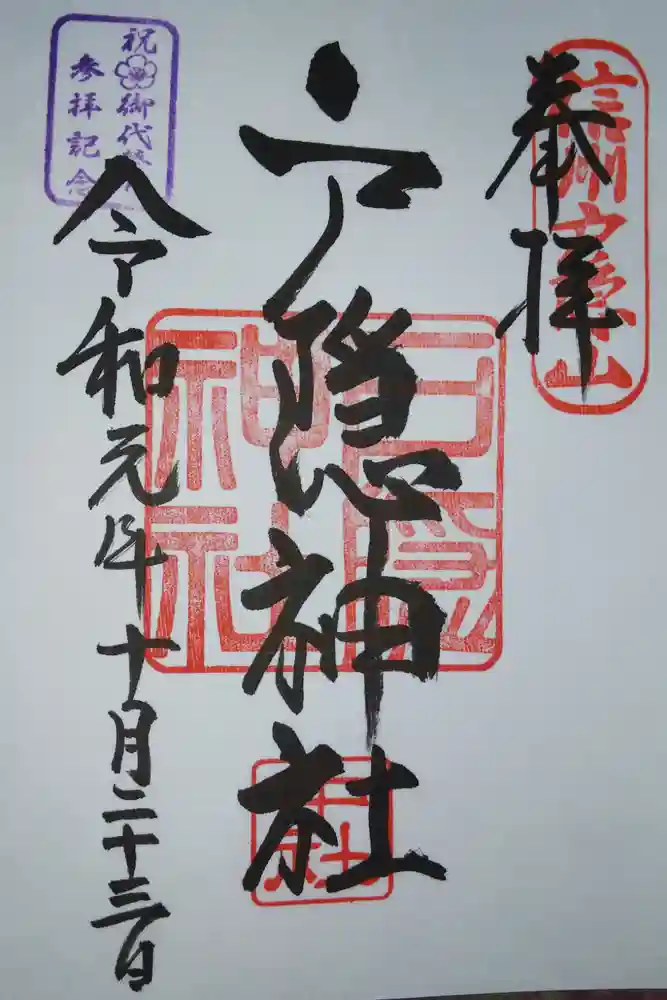 奉拝
信州戸隠山
戸隠神社
戸隠
神社
中社
令和元年十月二十三日
祝御代替
参拝記念